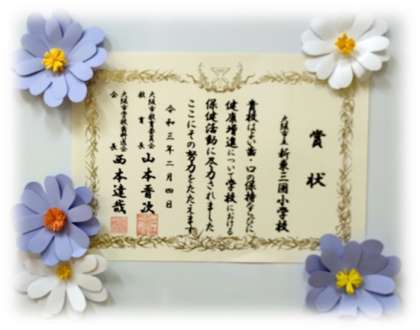 賞状
大阪市立 新東三国小学校
貴校はよい歯・口の保持ならびに
健康増進について学校における
保健活動に尽力されました
ここにその努力をたたえます
令和三年二月四日
大阪市教育委員会
教育長 山本晋次
大阪市学校歯科医会
会長 西本達哉